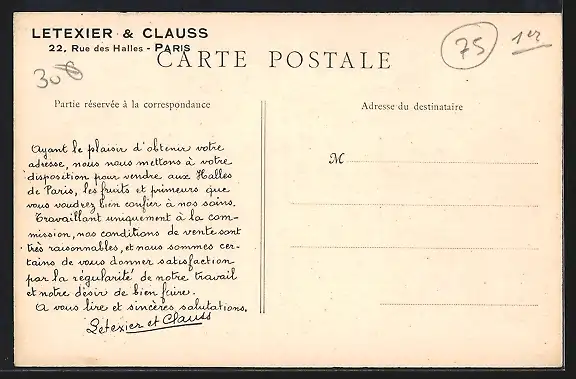 LETEXIER & CLAUSS
22, Rue des Halles - PARIS
CARTE POSTALE
75
1er
308
Partie réservée à la correspondance
Adresse du destinataire
Ayant le plaisir d'obtenir votre
adresse, nous nous mettons à votre
disposition pour vendre aux Halles
de Paris, les fruits et primeurs que
vous voudrez bien confier à nos soins.
Travaillant uniquement à la com-
mission, nos conditions de vente sont
très raisonnables, et nous sommes cer-
tains de vous donner satisfaction
par la régularité de notre travail
et notre désir de bien faire.
A vous lire et sincères salutations.
Letexier et Clauss
M